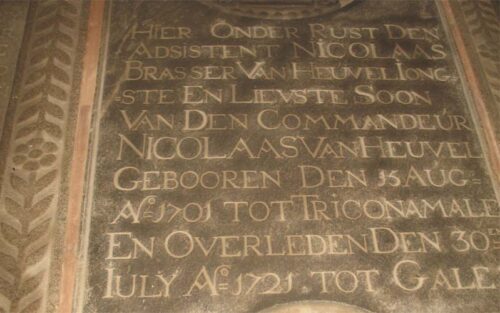 HIER ONDER RUST DEN
ADSISTENT NICOLAAS
BRASSER VAN HEUVEL IONG-
-STE EN LIEVSTE SOON
VAN DEN COMMANDEUR
NICOLAAS VAN HEUVEL
GEBOOREN DEN 15 AUG-
Aº 1701 TOT TRICONAMALE
EN OVERLEDEN DEN 30EN
IULY Aº 1721. TOT GALE